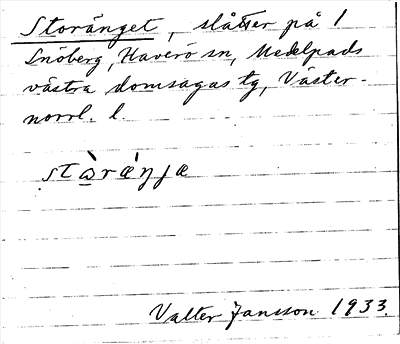 Storänget, slåtter på 1
Snöberg, Haverö sn, Medelpads
västra domsagas tg, Väster-
norrl. l.
stὼræ̀ŋjæ
Valter Jansson 1933.